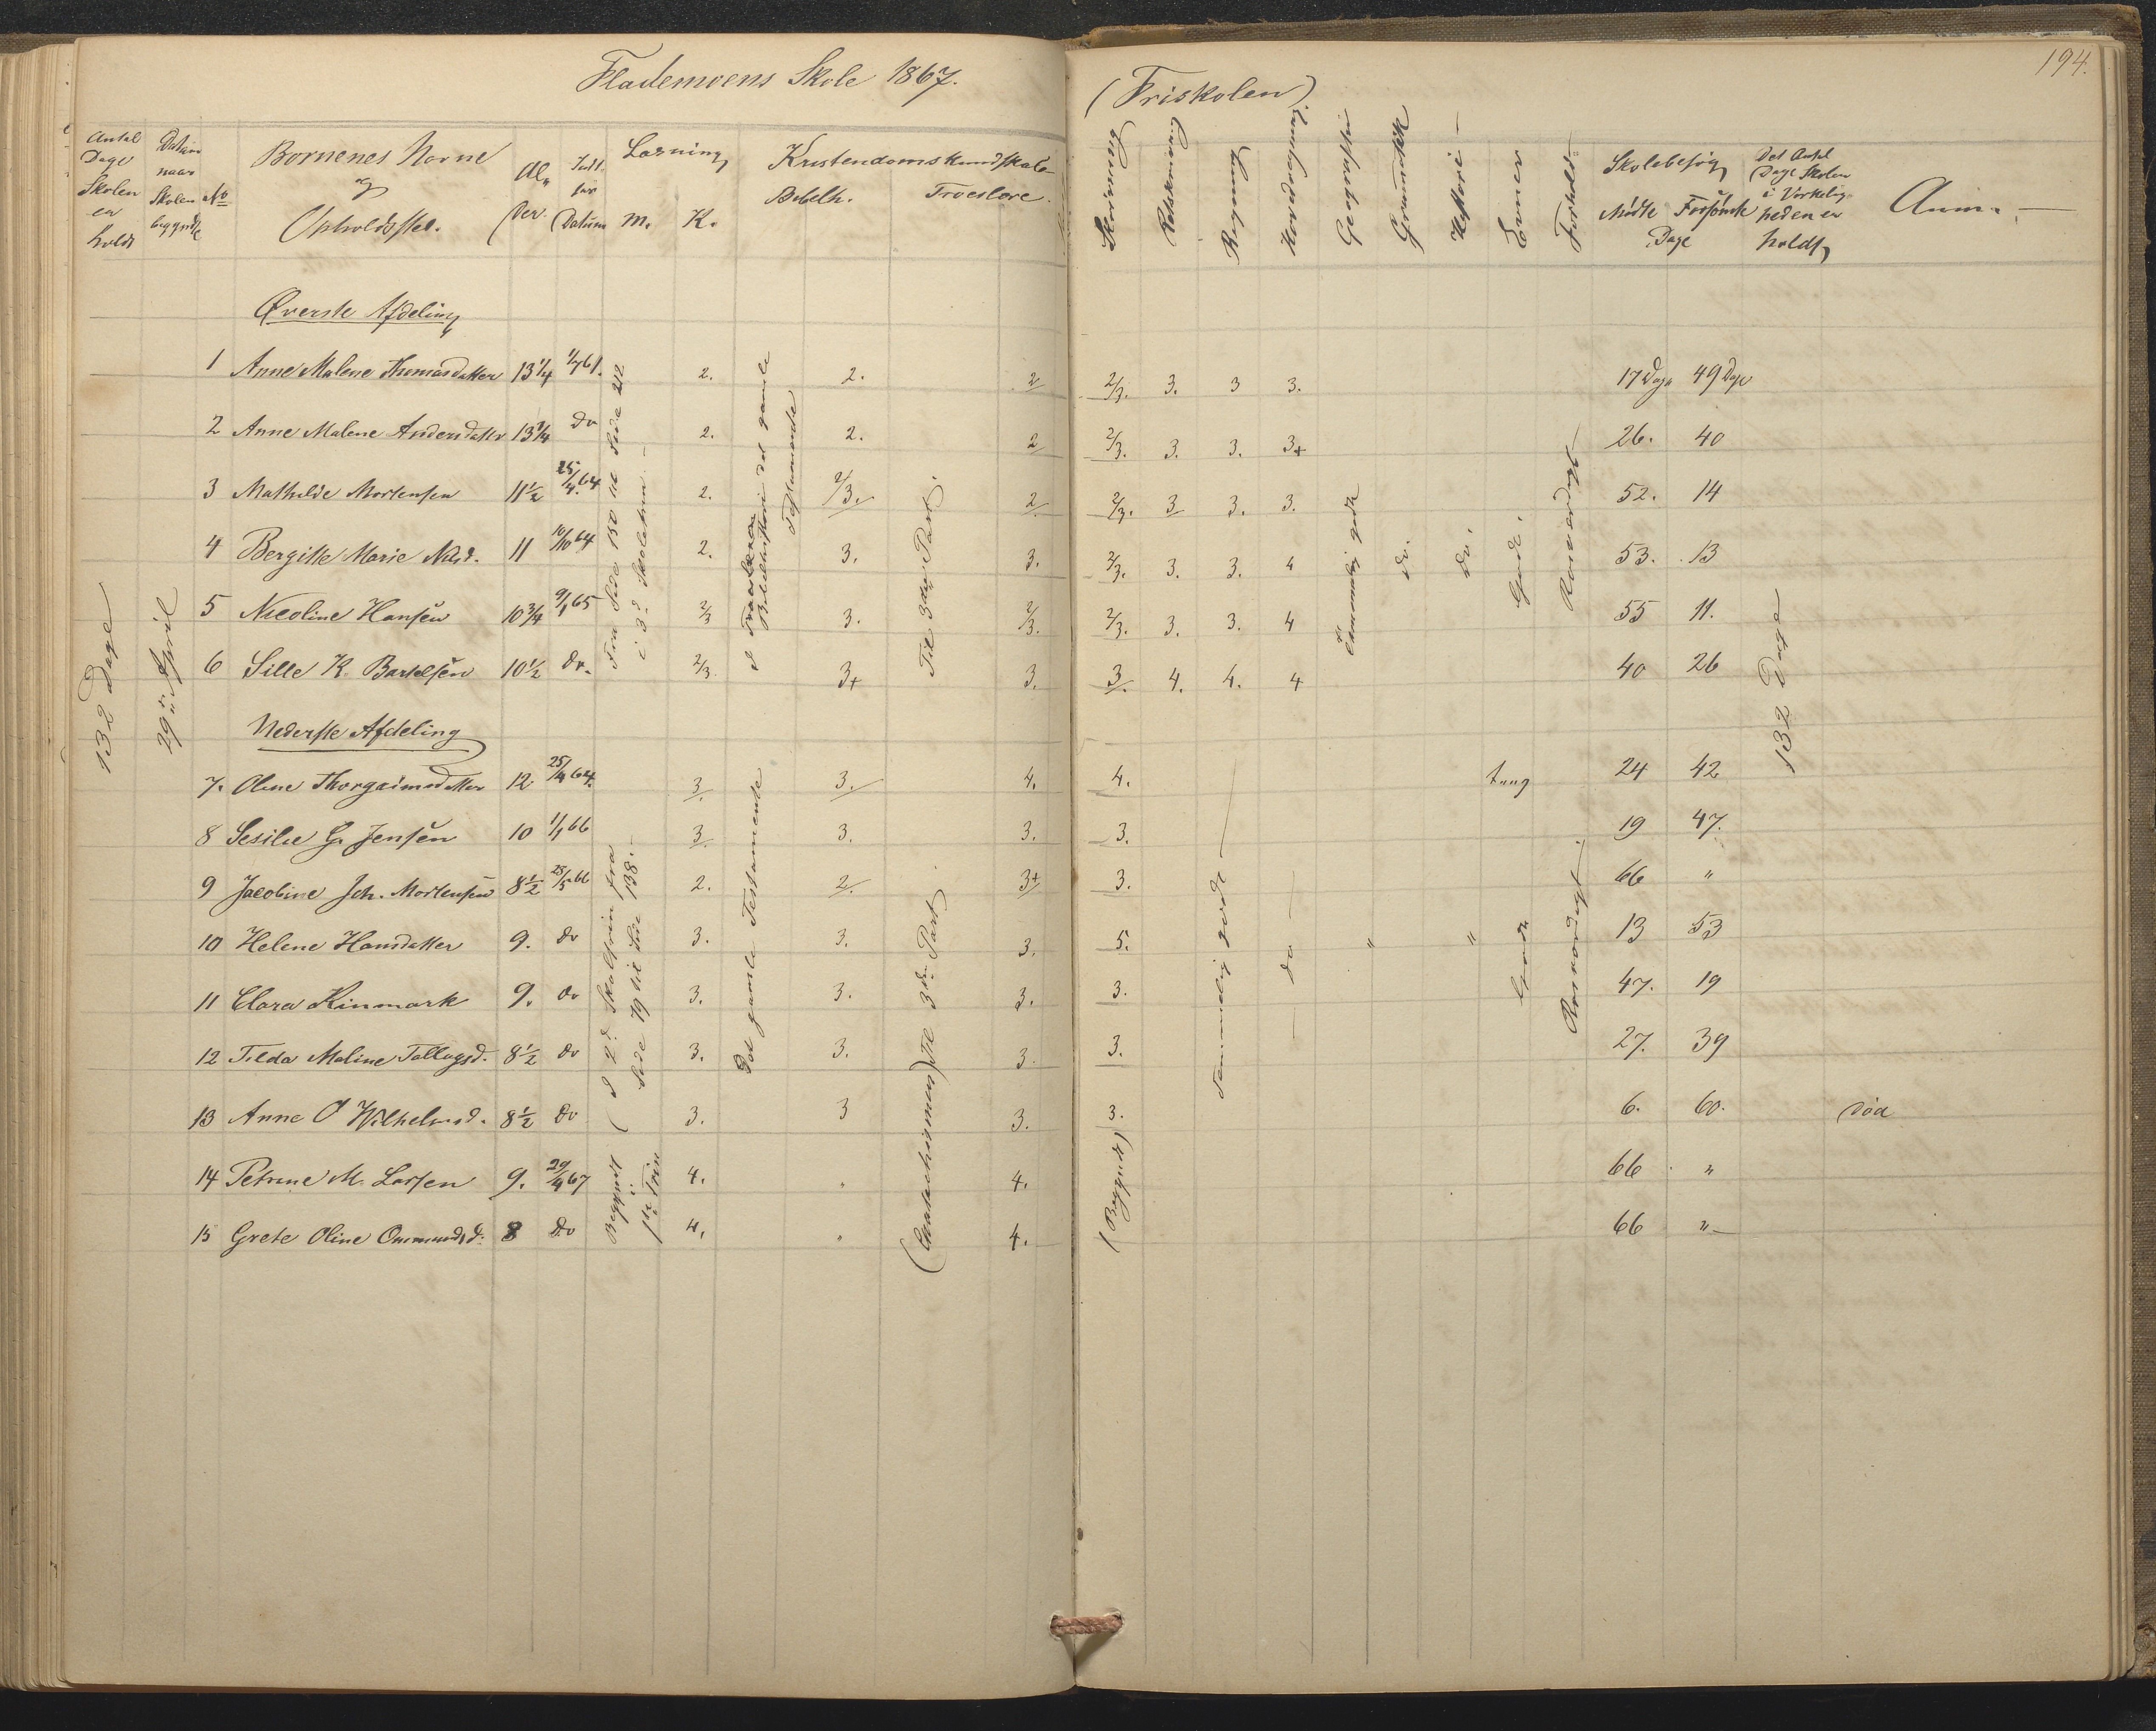 Flademoens Skole 1867.
(Friskolen)
194.
Antal Dage Skolen er holdt
Datum naar Skolen begyndte
No
Børnenes Navne og Opholdssted.
Alder.
Indt. Datum
Læsning
M. K.
Kristendomskundskab
Bibelh. Troeslære
Skrivning
Retskrivning
Regning
Hovedregning
Geografi
Grammatik
Historie
Evner
Forhold
Skolebesøg
Mødte Forsømte
Dage
Det Antal Dage Skolen i Virkeligheden er holdt
Anm.
132 Dage
29 April
Øverste Afdeling
1 Anne Malene Thomasdatter 13 1/4 61. 2. 2. 2 2/3. 3. 3 3. 17 Dage 49 Dage
2 Anne Malene Andersdatter 13 1/4 do 2. 2. 2 2/3. 3. 3. 3+ 26. 40
3 Mathilde Mortensen 11 1/2 25/4 64 2. 2/3. 2 2/3. 3 3. 3. 52. 14
4 Bergitte Marie Nilsd. 11 10/10 64 2. 3. 3. 2/3. 3. 3. 4 53. 13
5 Nicoline Hansen 10 3/4 9/1 65 2/3 3. 2/3. 2/3. 3. 3. 4 55 11.
6 Sille K. Bartelsen 10 1/2 do. 2/3. 3+ 3. 3. 4. 4. 4 40 26
Fra Side 150 til Side 212 i 3d Skoletrin
I Troeslæren Bibelhistorie det gamle Testamente
Til 3die Part.
Temmelig godt
do.
do.
Gode.
Rosværdigt
132 Dage
Nederste Afdeling
7. Oline Thorgrimsdatter 12. 25/4 64. 3. 3. 4. 4. tung 24 42
8 Sesilie G. Jensen 10 1/1 66 3. 3. 3. 3. 19 47.
9 Jacobine Joh. Mortensen 8 1/2 25/5 66 2. 2. 3+ 3. 66 "
10 Helene Hansdatter 9. do 3. 3. 3. 5. 13 53
11 Clara Kinmark 9. do 3. 3. 3. 3. 47. 19
12 Tilda Maline Tallagsd. 8 1/2 do 3. 3. 3. 3. 27. 39
13 Anne O Wilhelmsd. 8 1/2 do 3. 3 3. 3. 6. 60. død
14 Petrine M. Larsen 9. 29/4 67 4. " 4. 66 "
15 Grete Oline Ommundsd. 8 do 4. " 4. 66 "
I 2d Skoletrin fra Side 79 til Side 138.
Begyndt i 1ste Trin
Det gamle Testamente
(Chatachismus) Til 3die Part
(Begyndt)
Temmelig godt
do
"
"
Gode
Rosværdigt.